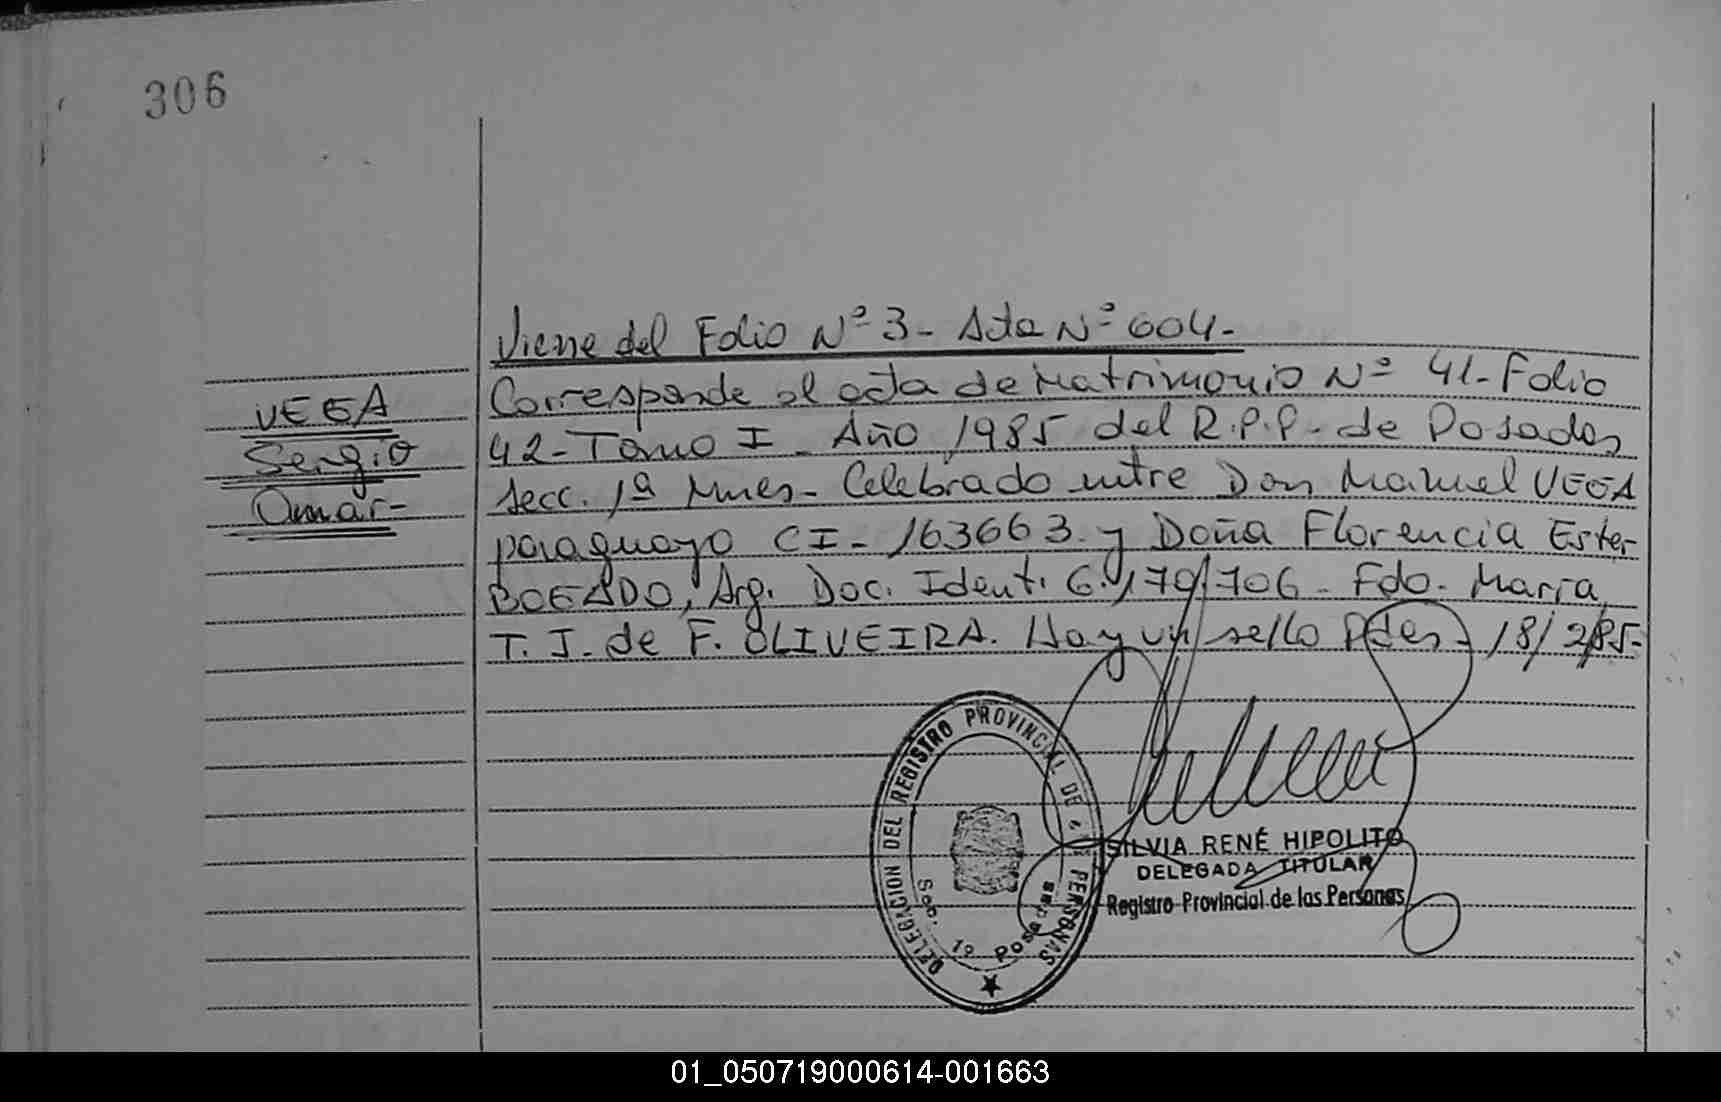 306
Viene del Folio Nº 3 - Acta Nº 604.-
VEGA
Sergio
Omar-
Corresponde al acta de Matrimonio Nº 41-Folio
42-Tomo I - Año 1985 del R.P.P- de Posadas
secc. 1ª Mnes- Celebrado entre Don Manuel VEGA
paraguayo CI- 163663 y Doña Florencia Ester
BOGADO, Arg. Doc. Ident. 6.170.706 - Fdo. María
T. J. de F. OLIVEIRA. Hay un sello Pdas- 18/2/85-
DELEGACION DEL REGISTRO PROVINCIAL DE PERSONAS
Sec. 1ª Posadas
SILVIA RENÉ HIPOLITO
DELEGADA TITULAR
Registro Provincial de las Personas
01_050719000614-001663